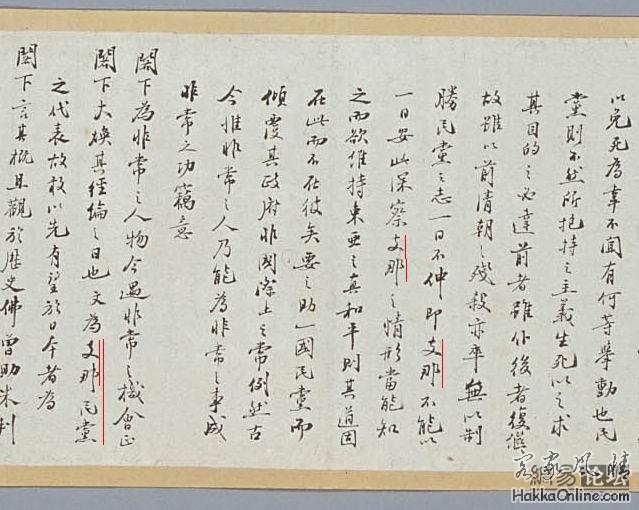 以免死為幸不聞有何等舉動也民
黨則不然所抱持之主義生死以之求
其目的之必達前者雖仆後者復繼
故雖以前清朝之殘殺亦卒無以制
勝民黨之志一日不伸即支那不能以
一日安此深察支那之情形當能知
之而欲維持東亞之真和平則其道固
在此而不在彼矣要之助一國民黨而
傾覆其政府非國際上之常例然古
今惟非常之人乃能為非常之事成
非常之功竊意
閣下為非常之人物今遇非常之機會正
閣下大煥其經綸之日也文為支那民黨
之代表故敢以先有望於日本者為
閣下言其概且觀於歷史佛曾助米利
客家風情
易论坛
HakkaOnline.com